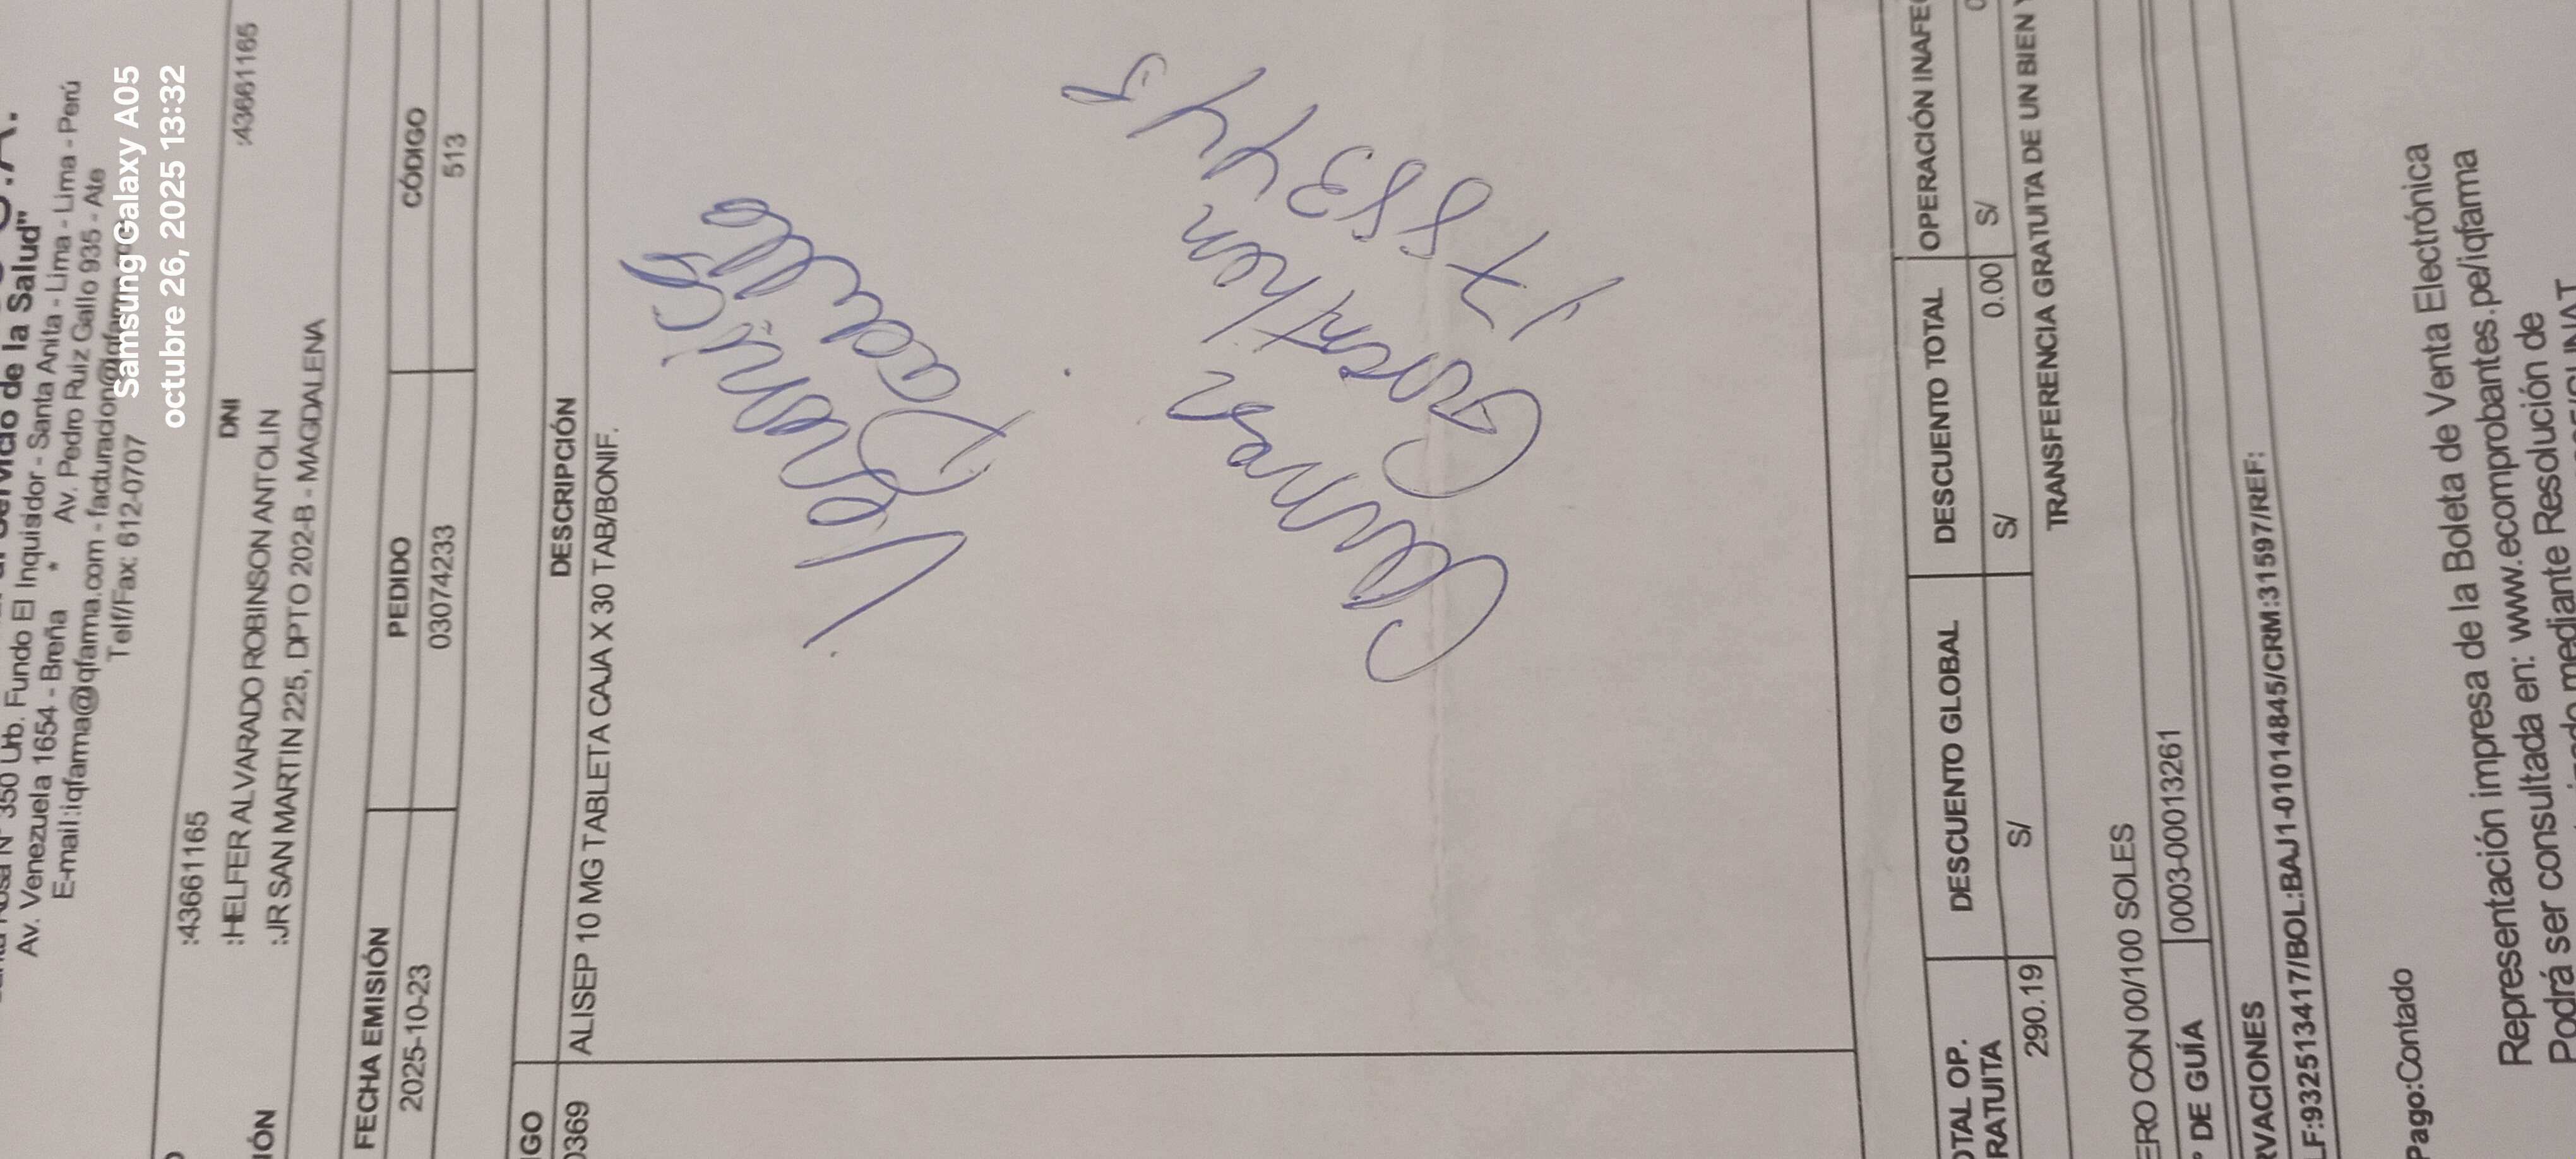 al Servicio de la Salud"
N° 350 Urb. Fundo El Inquisidor - Santa Anita - Lima - Lima - Perú
Av. Venezuela 1654 - Breña * Av. Pedro Ruiz Gallo 935 - Ate
E-mail:iqfarma@iqfarma.com - facturacion@iqfarma
Telf/Fax: 612-0707
Samsung Galaxy A05
octubre 26, 2025 13:32
:43661165
:HELFER ALVARADO ROBINSON ANTOLIN DNI :43661165
IÓN :JR SAN MARTIN 225, DPTO 202-B - MAGDALENA
FECHA EMISIÓN PEDIDO CÓDIGO
2025-10-23 03074233 513
IGO DESCRIPCIÓN
0369 ALISEP 10 MG TABLETA CAJA X 30 TAB/BONIF.
Veronica
Padilla
Carmen
Guenthen
178834
OTAL OP. RATUITA DESCUENTO GLOBAL DESCUENTO TOTAL OPERACIÓN INAFE
290.19 S/ S/ 0.00 S/
TRANSFERENCIA GRATUITA DE UN BIEN Y
ERO CON 00/100 SOLES
° DE GUÍA 0003-00013261
RVACIONES
LF:932513417/BOL:BAJ1-01014845/CRM:31597/REF:
Pago:Contado
Representación impresa de la Boleta de Venta Electrónica
Podrá ser consultada en: www.ecomprobantes.pe/iqfarma
mediante Resolución de